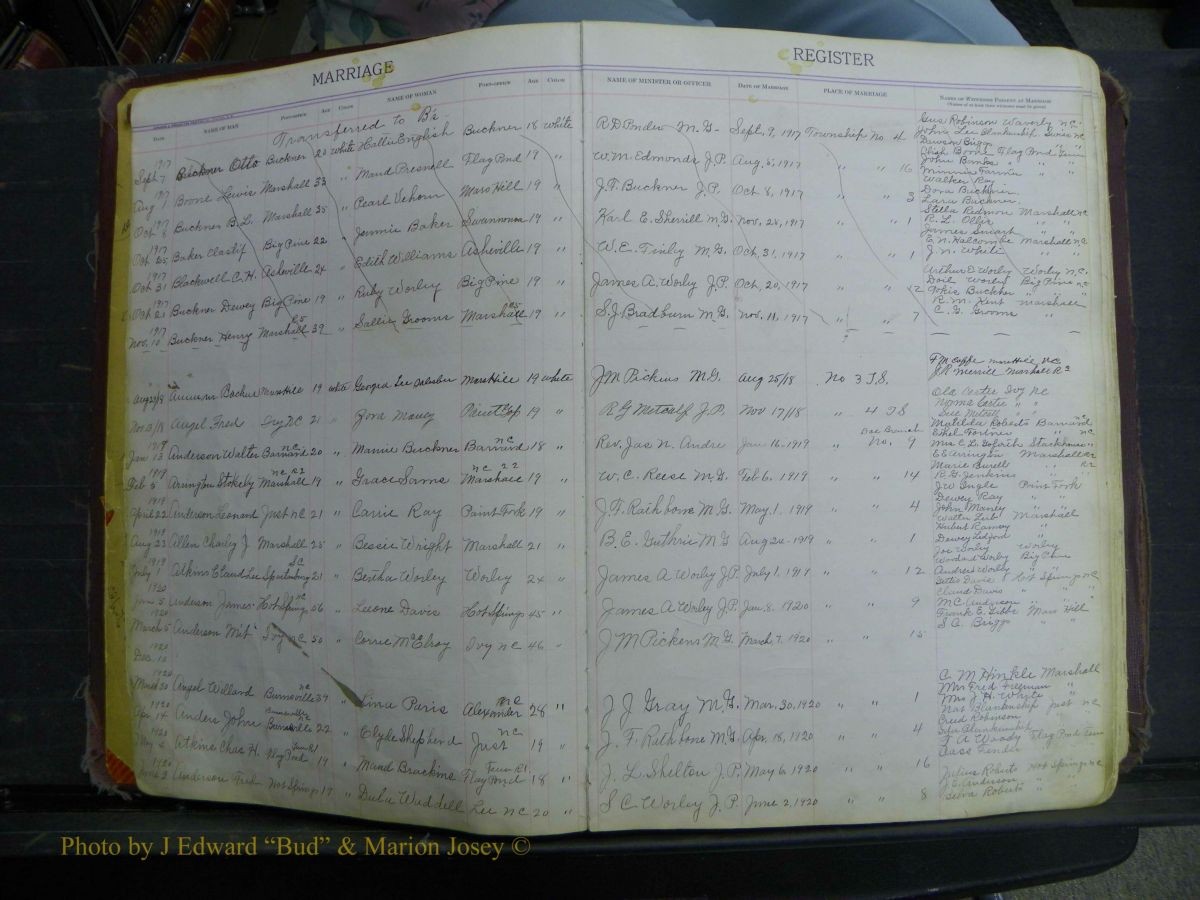 MARRIAGE REGISTER
DATE NAME OF MAN POST-OFFICE AGE COLOR NAME OF WOMAN POST-OFFICE AGE COLOR NAME OF MINISTER OR OFFICER DATE OF MARRIAGE PLACE OF MARRIAGE NAMES OF WITNESSES PRESENT AT MARRIAGE
Transferred to B's
1917 Sept 7 Buckner Otto Buckner 20 white Hattie English Buckner 18 white R D Ponder M.G. Sept. 9, 1917 Township No 4 Gus Robinson Waverly N.C.
John Lee Blankenship
Dawson Briggs
1917 Aug 1 Boone Lewis Marshall 33 " Maud Presnell Flag Pond 19 " W.M Edmonds J.P. Aug. 5, 1917 " " 16 Boone Flag Pond Tenn
John Banks "
Minnie Farmer "
Walker Ray
1917 Oct 8 Buckner B.L. Marshall 25 " Pearl Vehorn Mars Hill 19 " J.F. Buckner J.P. Oct 8, 1917 " " 3 Dora Buckner
Lara Buckner
1917 Oct 25 Baker Big Pine 22 " Jennie Baker Swannanoa 19 " Karl E. Sherrill M.G. Nov. 28, 1917 " " 1 Stella Redmon Marshall NC
R. L. Ollis "
James Smart "
1917 Oct 31 Blackwell C.H. Asheville 24 " Edith Williams Asheville 19 " W. E. Finley M.G. Oct, 31, 1917 " " 1 E N. Halcombe Marshall NC
J. N. White "
1917 Oct 21 Buckner Dewey Big Pine 19 " Ruby Worley Big Pine 19 " James A. Worley J.P. Oct, 20, 1917 " " 12 Arthur E Worley Worley N.C.
Doil Worley Big Pine NC
Buckner "
1917 Nov. 10 Buckner Henry Marshall R5 39 " Sallie Grooms Marshall R5 19 " S.J Bradburn M.G. Nov. 11, 1917 " " 7 R. M. Kent Marshall
C. G. Grooms "
Aug 24/18 Mars Hill 19 white Georgia Lee Mars Hill 19 white J M Pickins M.G. Aug 25/18 No 3 T.S. F M Mars Hill N.C.
J R Merrill Marshall R3
Nov 13/18 Angel Fred Ivy NC 21 " Zora Maney Paint Gap 19 " R G Metcalf J.P. Nov 17/18 " 4 T S Ola Carter Ivy NC
Norma Carter " "
Metcalf " "
1919 Jan 13 Anderson Walter Barnard NC 20 " Mamie Buckner Barnard NC 18 " Rev. Jas N. Andre Jan 16. 1919 Doe Branch No. 9 Matilda Roberts Barnard NC
Ethel Fortner " NC
Mrs C L Goforth Stackhouse "
1919 Feb 5 Arrington Stokely Marshall NC R2 19 " Grace Sams Marshall NC R2 19 " W. C. Reese M.G. Feb 6. 1919 " " 14 E E Arrington Marshall R2
Marie Burell " R2
R G Jenkins "
1919 April 22 Anderson Leonard Just NC 21 " Carrie Ray Paint Fork 19 " J. F. Rathbone M.G. May. 1. 1919 " " 4 J W Ingle Paint Fork
Dewey Ray "
John Maney "
1919 Aug 23 Allen Chady J. Marshall 25 " Bessie Wright Marshall 21 " B. E. Guthrie M G Aug 24-1919 " " 1 Walter Marshall
Hubert Ramsey "
Dewey Ledford "
1919 July 1 Atkins Claud Lee Spartanburg SC 21 " Bertha Worley Worley 24 " James A Worley J.P. July 1, 1919 " " 12 Joe Worley Worley
Woodard Worley Big Pine
Andrew Worley "
1920 Jan 5 Anderson James Hot Springs NC 66 " Leone Davis Hot Springs 45 " James A Worley J.P. Jan 8. 1920 " " 9 Davis Hot Springs NC
Claud Davis "
M C Anderson "
1920 March 5 Anderson "Mit" Ivy NC 50 " Corrie McElroy Ivy NC 46 " J M Pickens M G. March 7, 1920 " " 15 Frank E. Gibbs Mars Hill
S O. Briggs "
1920 Dec. 10
1920 March 30 Angel Willard Burnsville NC 34 " Lina Paris Alexander NC 28 " J J Gray M G. Mar. 30, 1920 " " 1 C. M Hinkle Marshall
Mrs Fred Freeman "
Mrs J. H. White "
1920 Apr 14 Anders John Burnsville 22 " Clyde Shepherd Just NC 19 " J. F. Rathbone M.G. Apr. 18, 1920 " " 4 Nat Blankenship Just NC
Creed Robinson "
Blankenship "
1920 May 6 Atkins Chas H. Flag Pond Tenn R1 19 " Maud Brackins Flag Pond Tenn R1 18 " J. L Shelton J.P. May 6. 1920 " " 16 F A Woody Flag Pond Tenn
Cass Tender "
1920 June 2 Anderson Fred Hot Springs 17 " Duba Waddell Lee NC 20 " S. C. Worley J. P. June 2, 1920 " " 8 Julius Roberts Hot Springs NC
J. E. Anderson "
Roberts "
Photo by J Edward “Bud” & Marion Josey ©